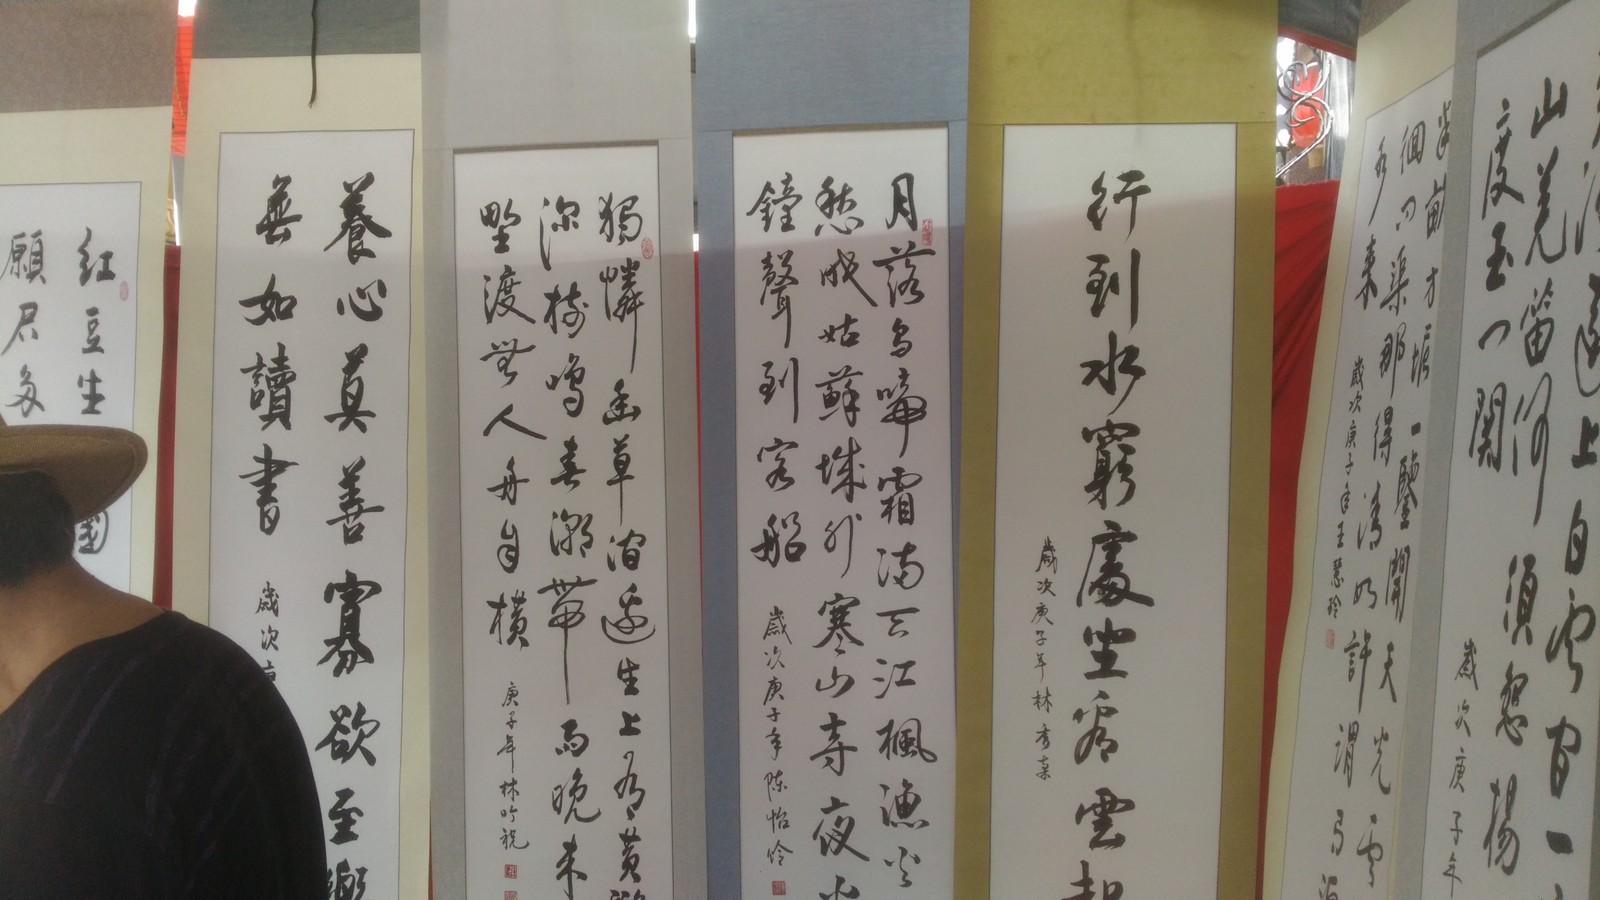 河遠上白雲間一
山羌笛何須怨楊
度玉门關
歲次庚子年
半畝方塘一鑒開天光雲
徊問渠那得清如許謂有源
水來
歲次庚子年王慧玲
行到水窮處坐看雲起
歲次庚子年林秀
月落烏啼霜滿天江楓漁火
愁眠姑蘇城外寒山寺夜半
鐘聲到客船
歲次庚子年陳怡伶
獨憐幽草澗邊生上有黃鸝
深樹鳴春潮帶雨晚來
野渡無人舟自橫
庚子年林吟祝
養心莫善寡欲至樂
無如讀書
歲次庚
紅豆生國
願君多